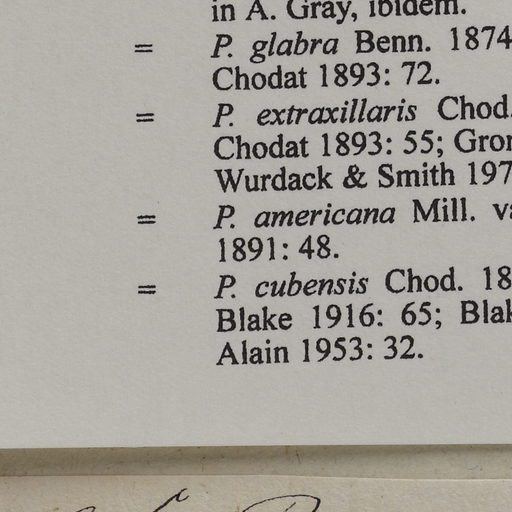 in A. Gray, ibidem.
= P. glabra Benn. 1874
Chodat 1893: 72.
= P. extraxillaris Chod.
Chodat 1893: 55;
Wurdack & Smith 197
= P. americana Mill.
1891: 48.
= P. cubensis Chod. 18
Blake 1916: 65;
Alain 1953: 32.